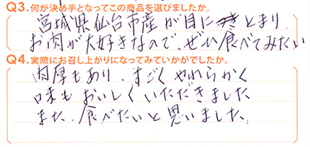 Q3.何が決め手となってこの商品を選びましたか。
宮城県仙台市産が目にとまり
お肉が大好きなので、ぜひ食べてみたい
Q4.実際にお召し上がりになってみていかがでしたか。
肉厚もあり、すごくやわらかく
味もおいしくいただきました
また、食べたいと思いました。